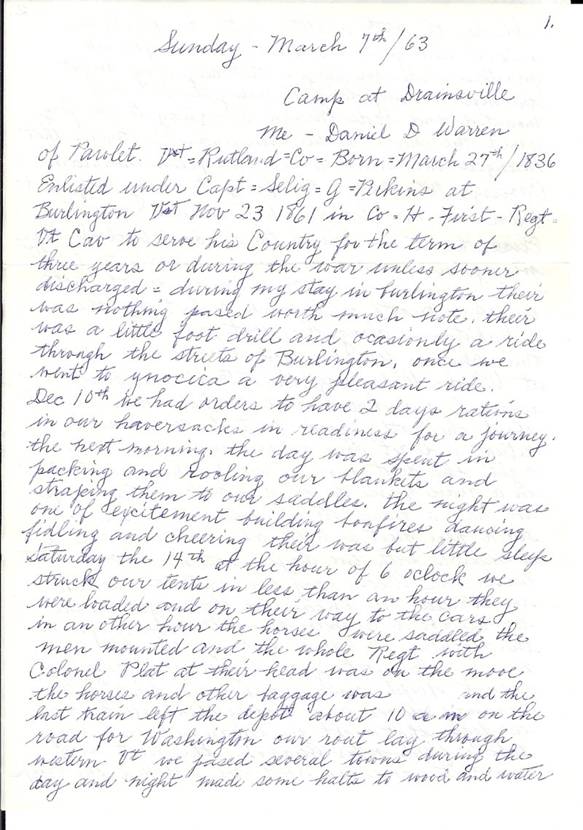 1.
Sunday - March 7th/63
Camp at Drainsville
Me - Daniel D Warren
of Pawlet. Vt = Rutland = Co = Born = March 27th/1836
Enlisted under Capt = Selig = G = Perkins at
Burlington Vt Nov 23 1861 in Co = H - First - Regt =
Vt Cav to serve his Country for the term of
three years or during the war unless sooner
discharged = during my stay in burlington their
was nothing pased worth much note. their
was a little foot drill and ocasionly a ride
through the streets of Burlington, once we
went to ynocica a very pleasant ride.
Dec 10th we had orders to have 2 days rations
in our haversacks in readiness for a journey.
the next morning. the day was spent in
packing and rooling our blankets and
straping them to our saddles. the night was
one of excitement building bonfires dancing
fidling and cheering their was but little sleep
Saturday the 14th at the hour of 6 oclock we
struck our tents in less than an hour they
were loaded and on their way to the cars
in an other hour the horses were saddled the
men mounted and the whole Regt with
Colonel Plat at their head was on the move
the horses and other baggage was and the
last train left the depot about 10 a m on the
road for Washington our rout lay through
western Vt we pased several towns during the
day and night made some halts to wood and water